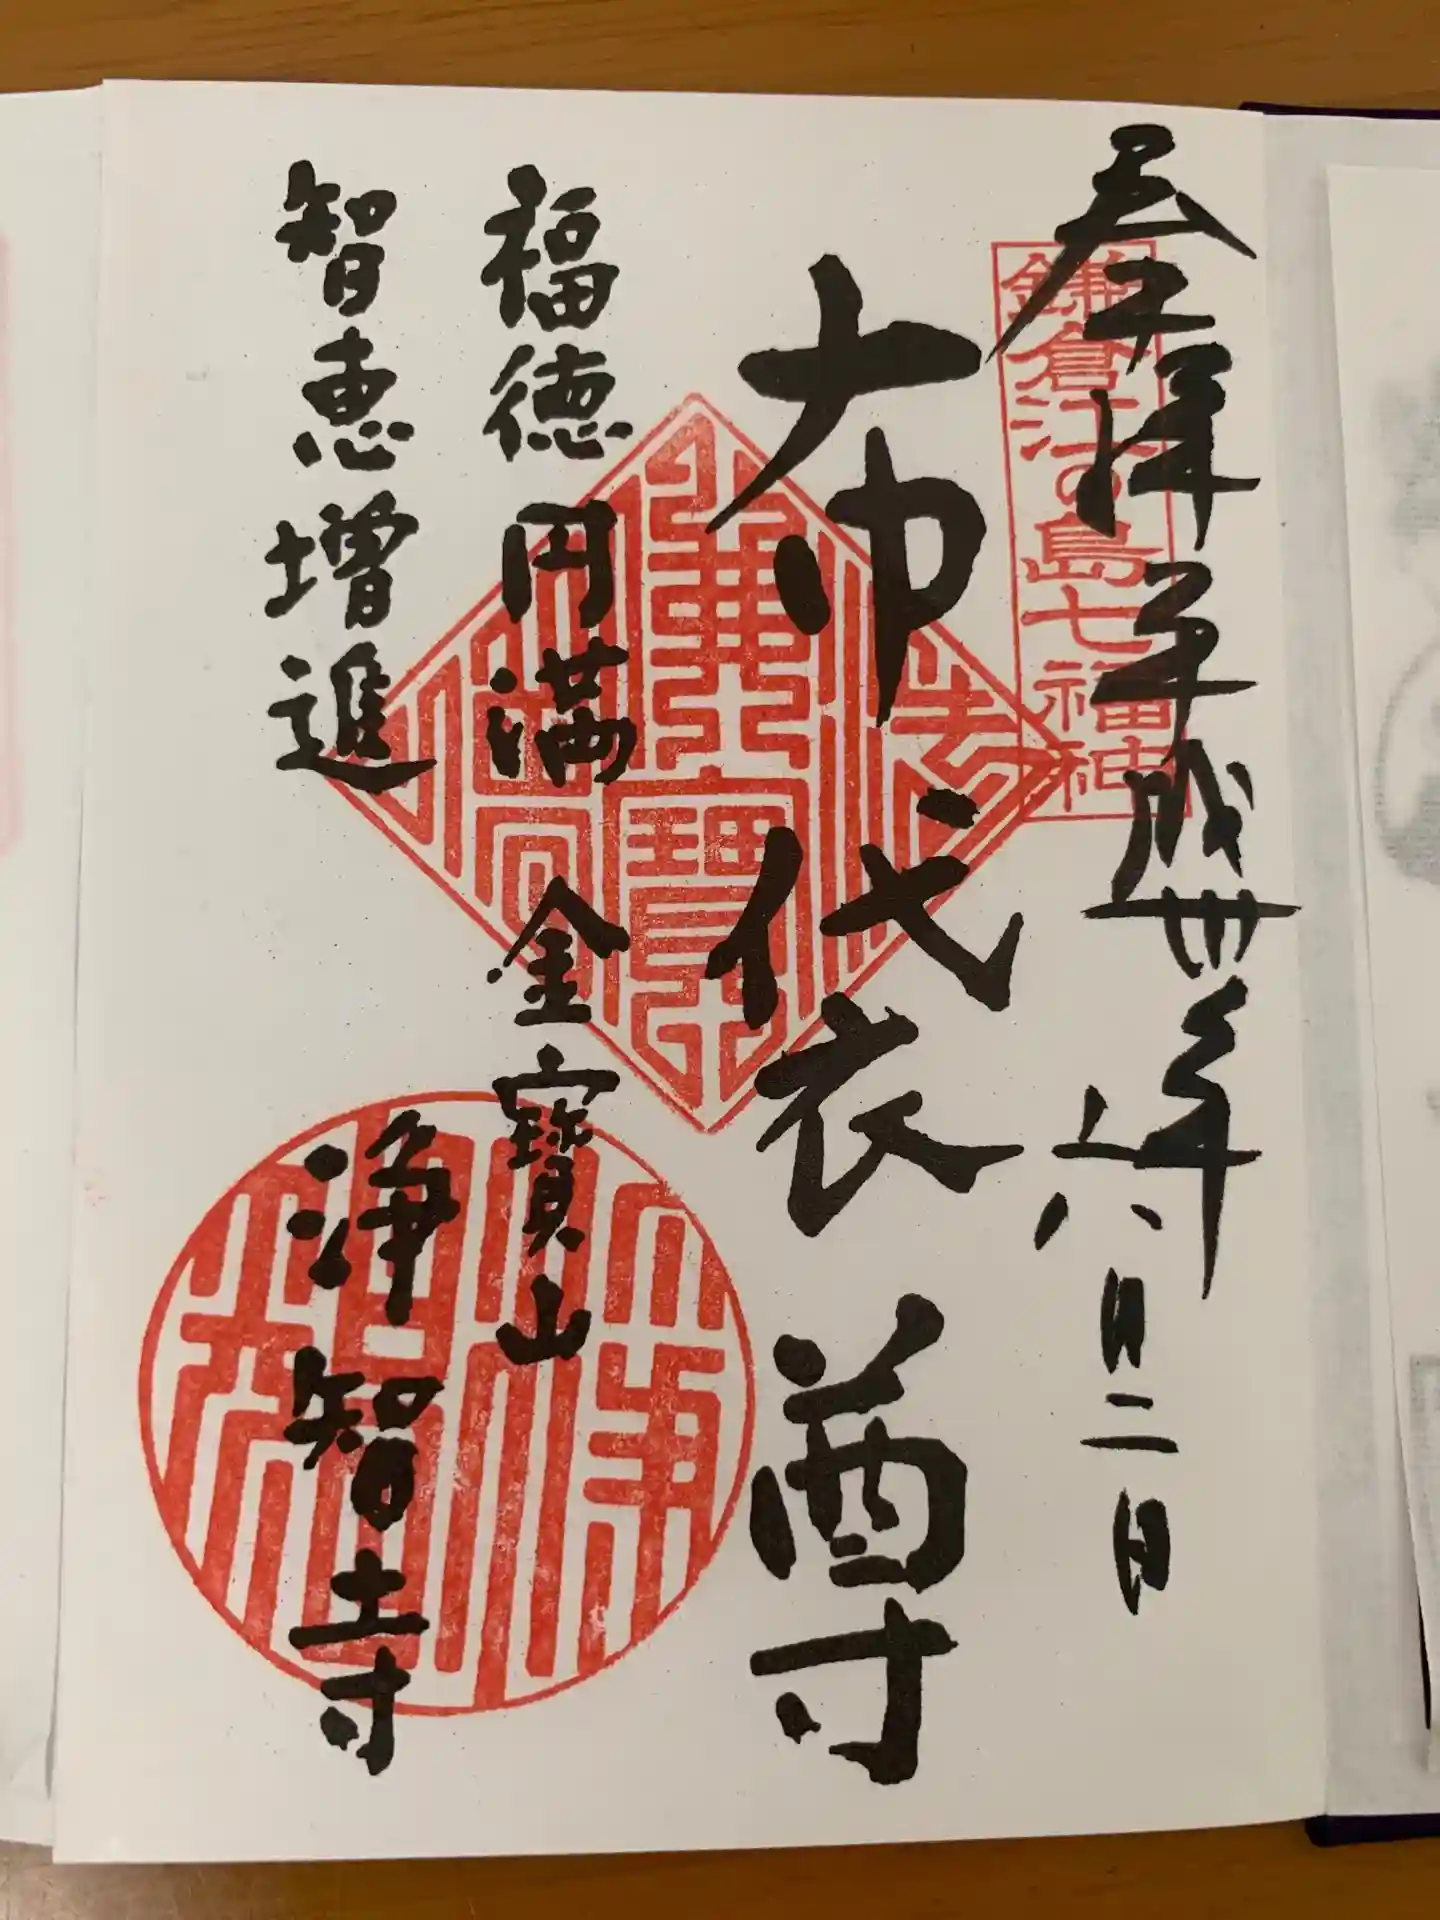 奉拝 平成卅年
八月二日
鎌倉江の島七福神
布袋尊
福徳円満 金寶山
智恵増進 浄智寺